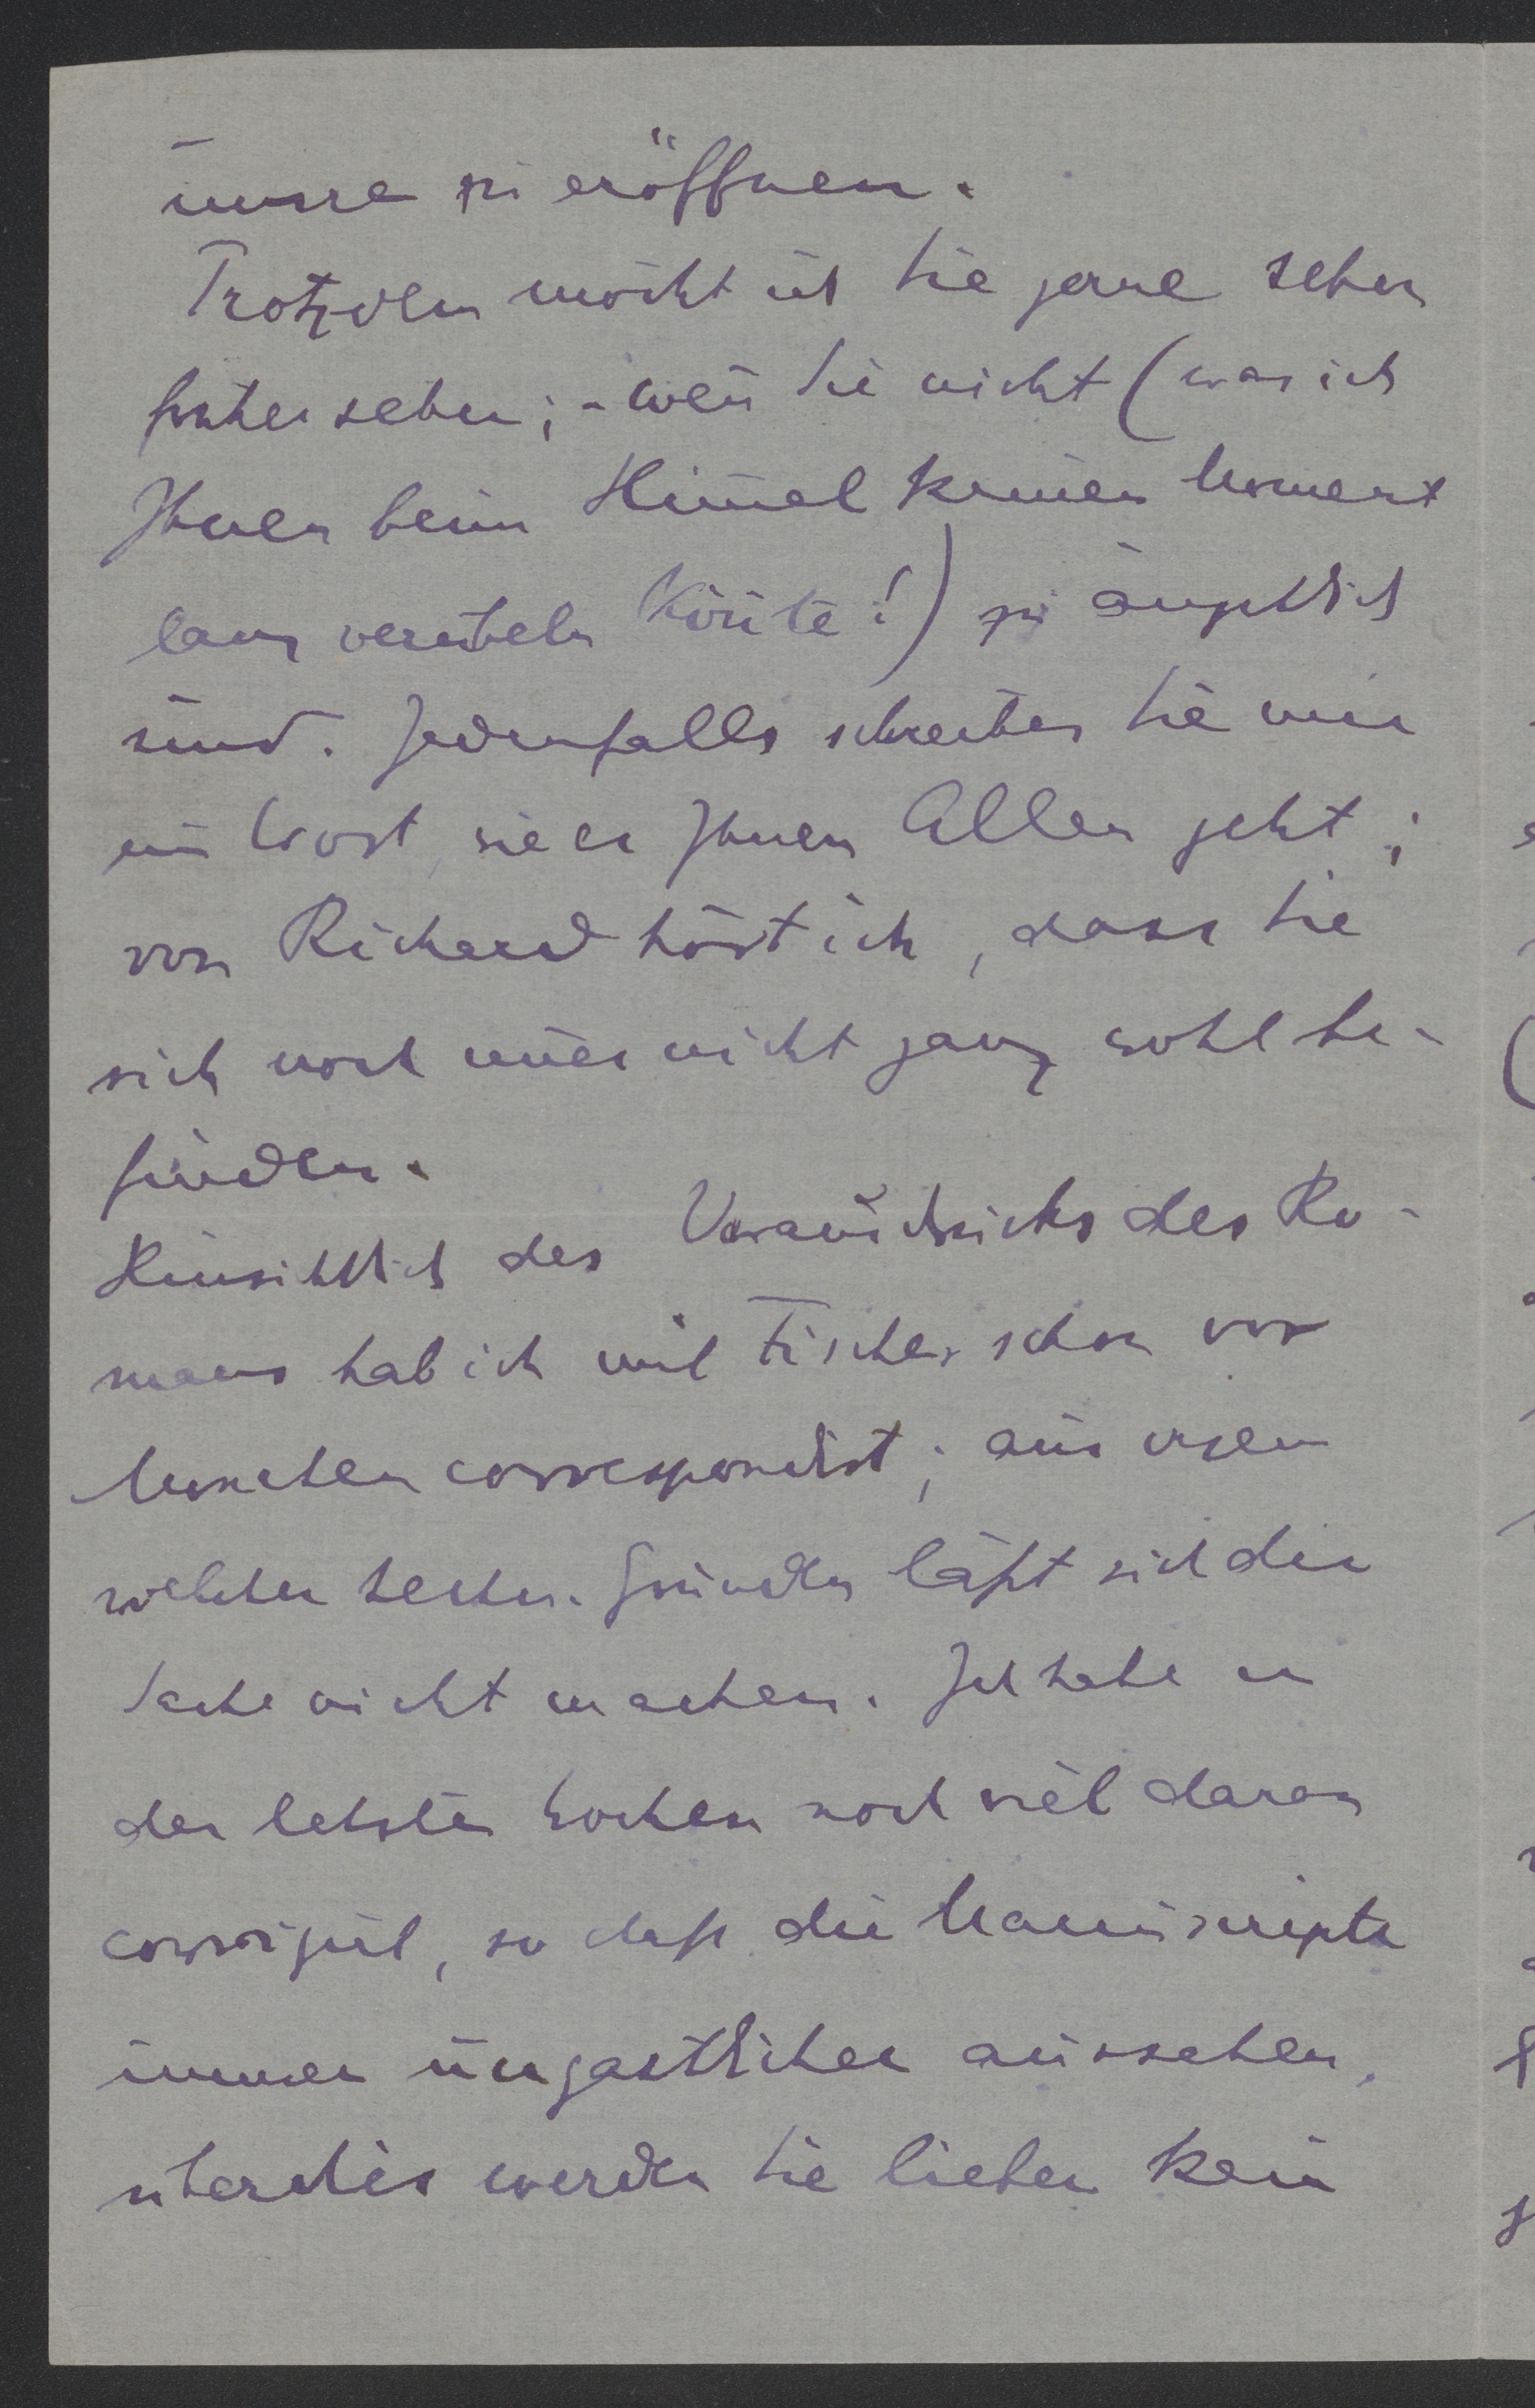 unsre zu eröffnen.
Trotzdem möcht ich Sie gerne schon
früher sehen; – weñ Sie nicht (was ich
Ihnen beim Him̄el keinen Moment
lang verübeln köñte!) zu ängstlich
sind. Jedenfalls schreiben Sie mir
ein Wort, wie es Ihnen Allen geht;
von Richard hört ich, dass Sie
sich noch im̄er nicht ganz wohl be-
finden.
Hinsichtlich des Vorausdrucks des Ro-
mans hab ich mit Fischer schon vor
Wochen correspondirt; aus
welchen techn. Gründen läßt sich die
Sache nicht machen. Ich habe in
den letzten Wochen noch viel daran
corrigirt, so daß die Manuscripte
immer ungastlicher aussehen,
überdies werden Sie lieber kein